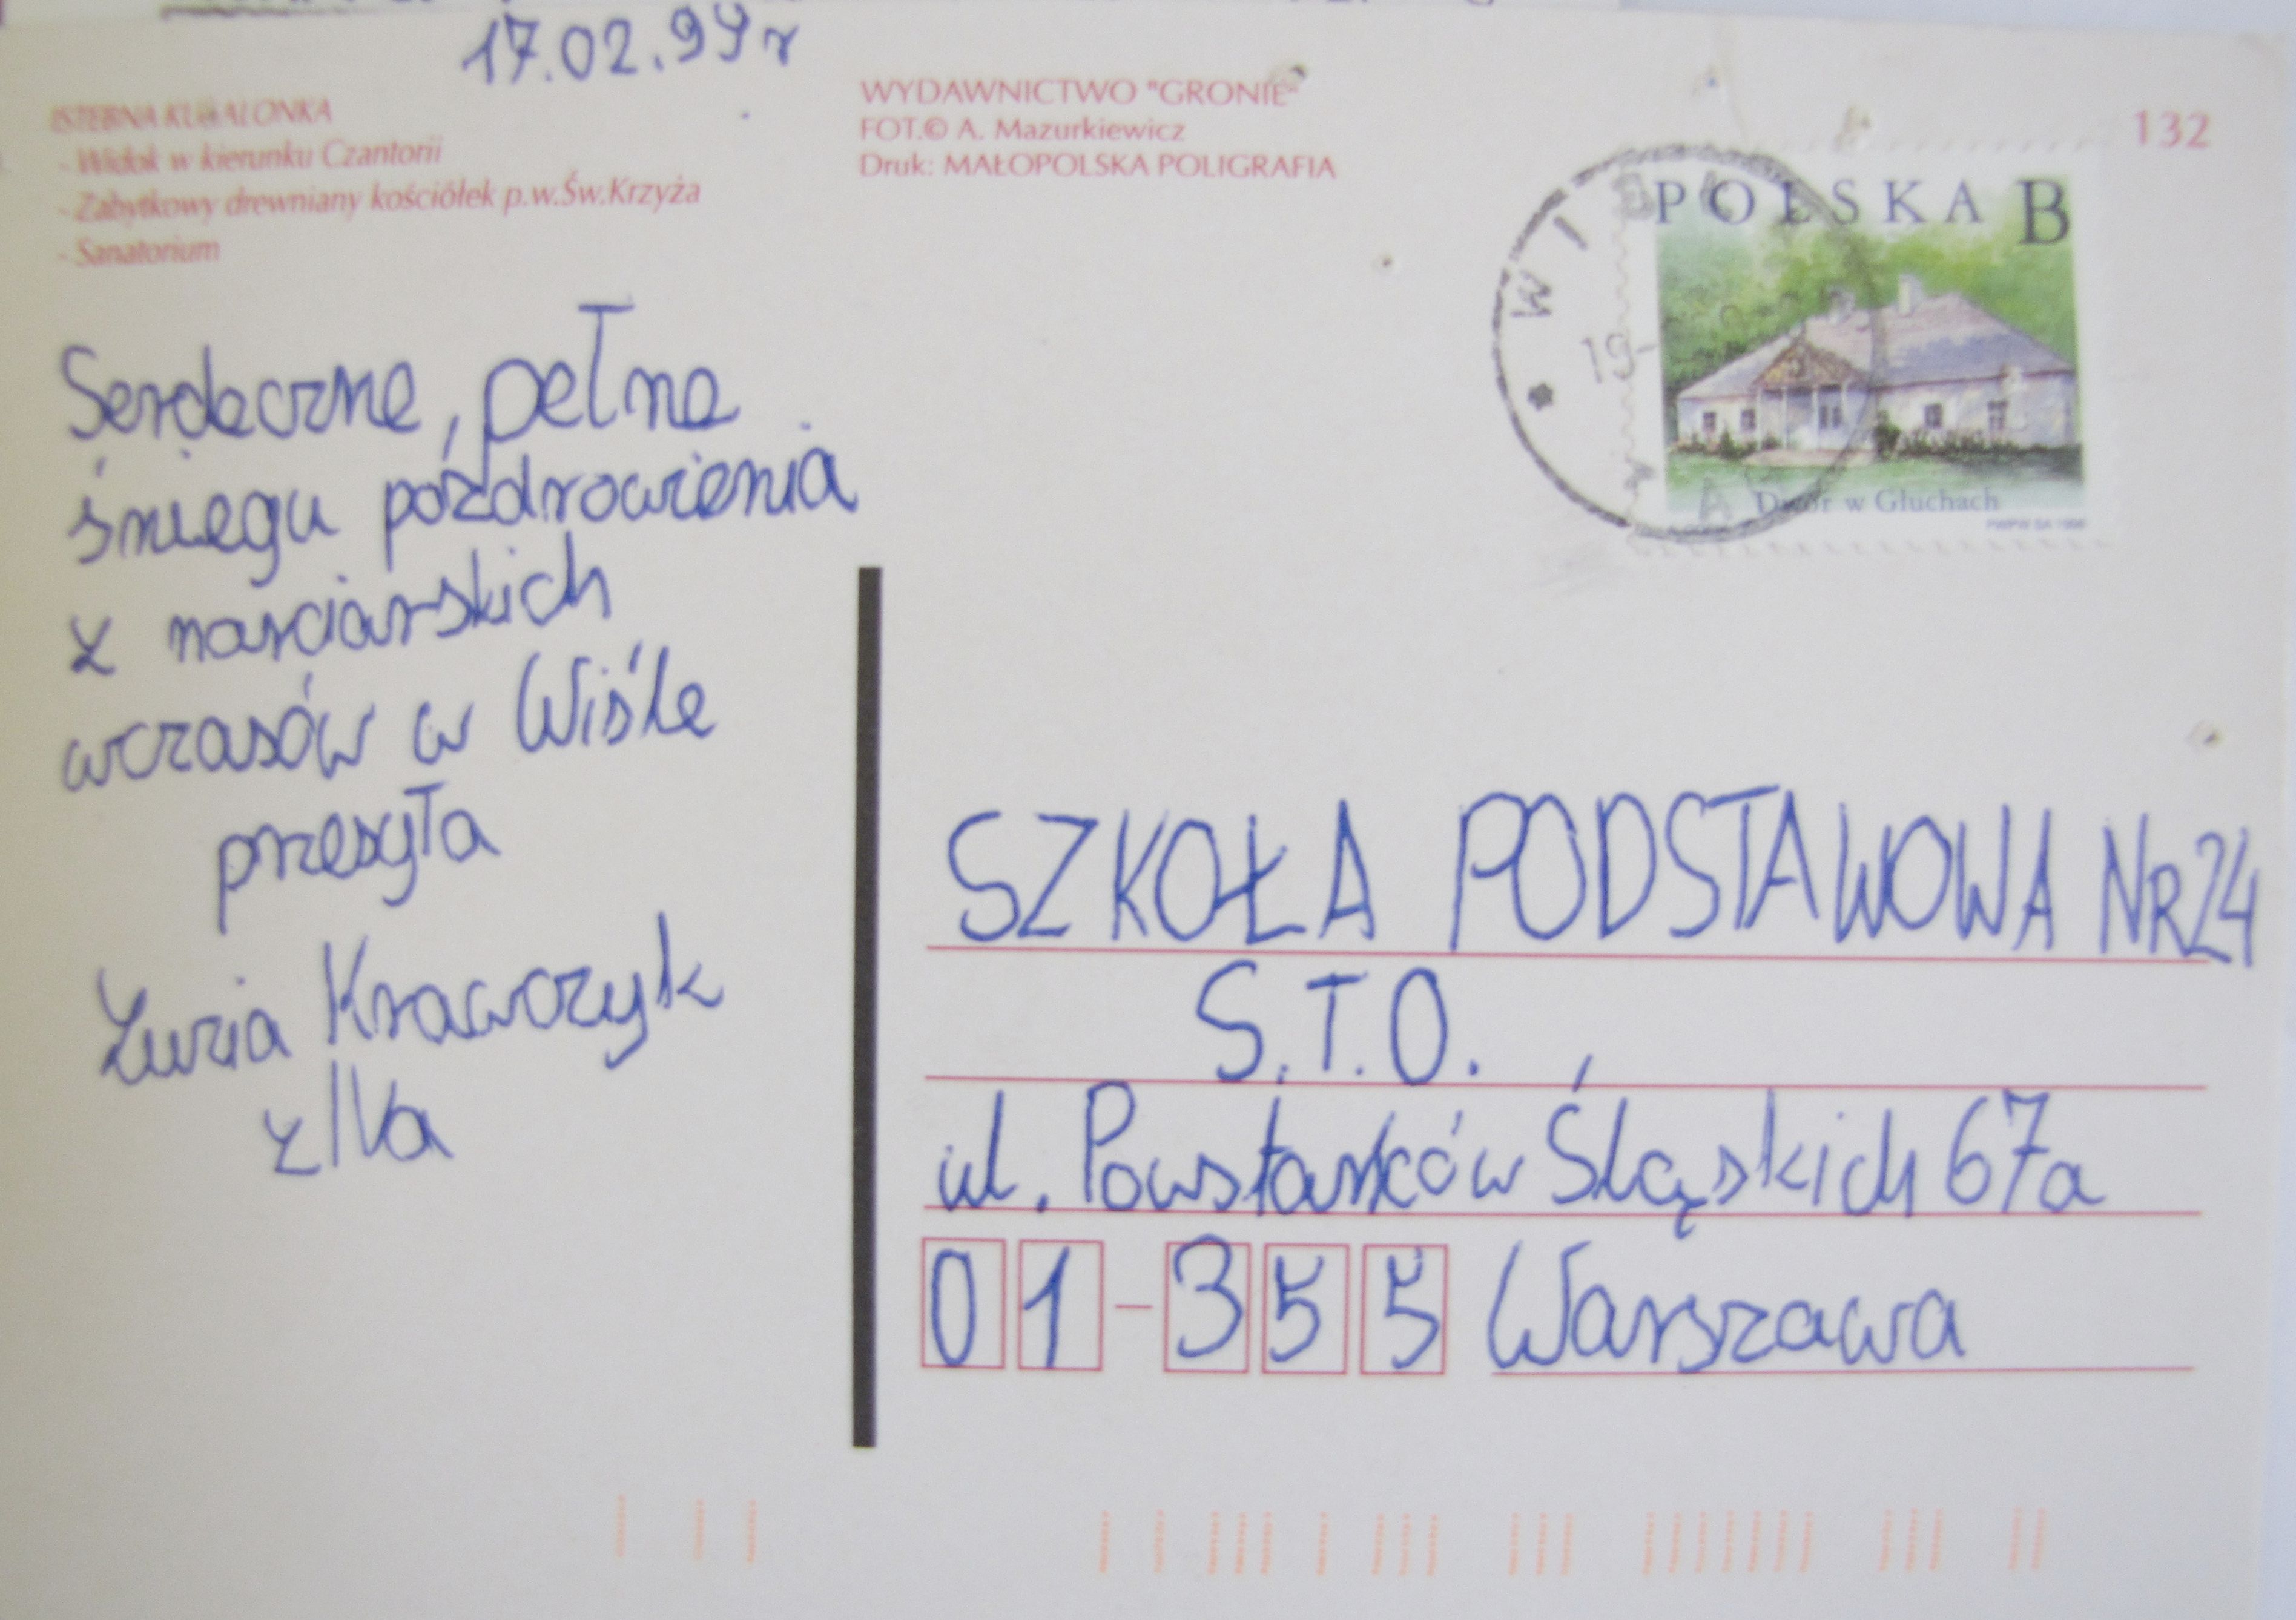 17.02.99r
ISTEBNA KUBALONKA
- Widok w kierunku Czantorii
- Zabytkowy drewniany kościółek p.w.Św.Krzyża
- Sanatorium
WYDAWNICTWO "GRONIE"
FOT.© A. Mazurkiewicz
Druk: MAŁOPOLSKA POLIGRAFIA
132
POLSKA B
Dwór w Głuchach
PWPW SA 1998
WISŁA
19-
Serdeczne, pełne
śniegu pozdrowienia
z narciarskich
wczasów w Wiśle
przesyła
Zuzia Krawczyk
z IVa
SZKOŁA PODSTAWOWA NR24
S.T.O.,
ul. Powstańców Śląskich 67a
01-355 Warszawa